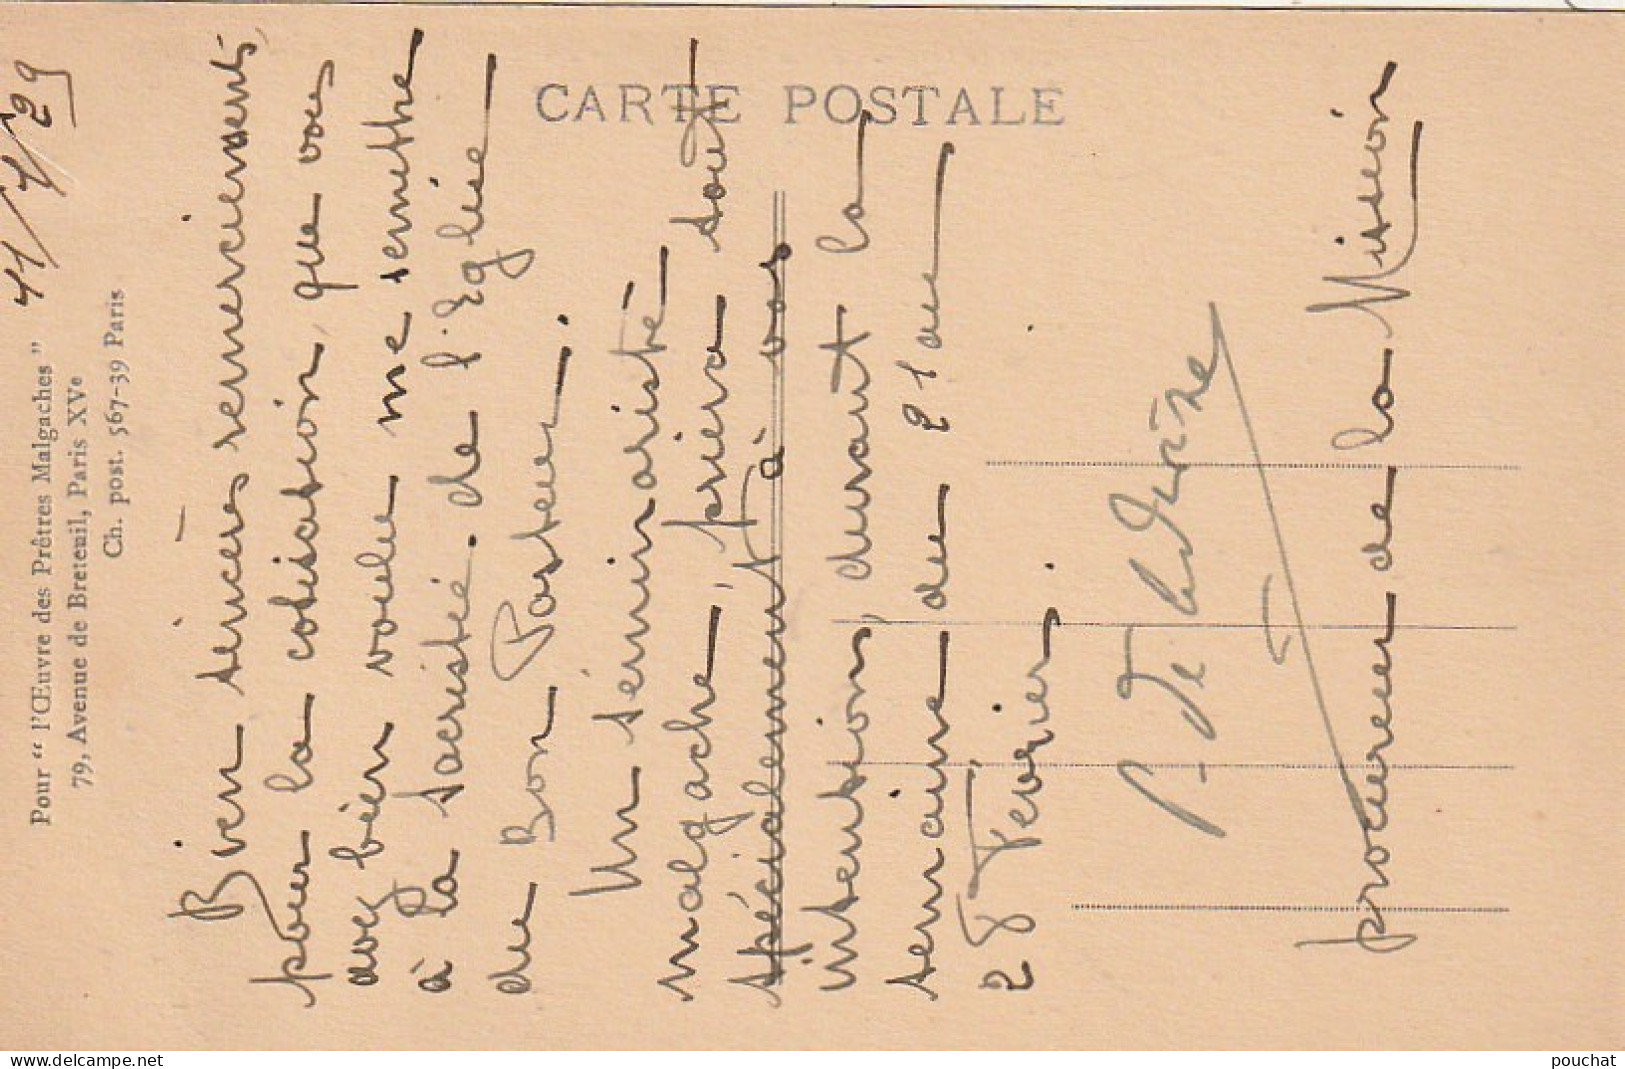 Pour “ l'Œuvre des Prêtres Malgaches ”
79, Avenue de Breteuil, Paris XVe
Ch. post. 567-39 Paris
CARTE POSTALE
Bien sincères remerciements,
pour la cotisation, que vous
avez bien voulu me remettre
à la sacristie de l'Eglise
du Bon Pasteur.
Un séminariste
malgache, priera tout
spécialement à vos
intentions, durant la
semaine du 21 au
28 Février.
procureur de la Mission
delcampe.net
pouchat